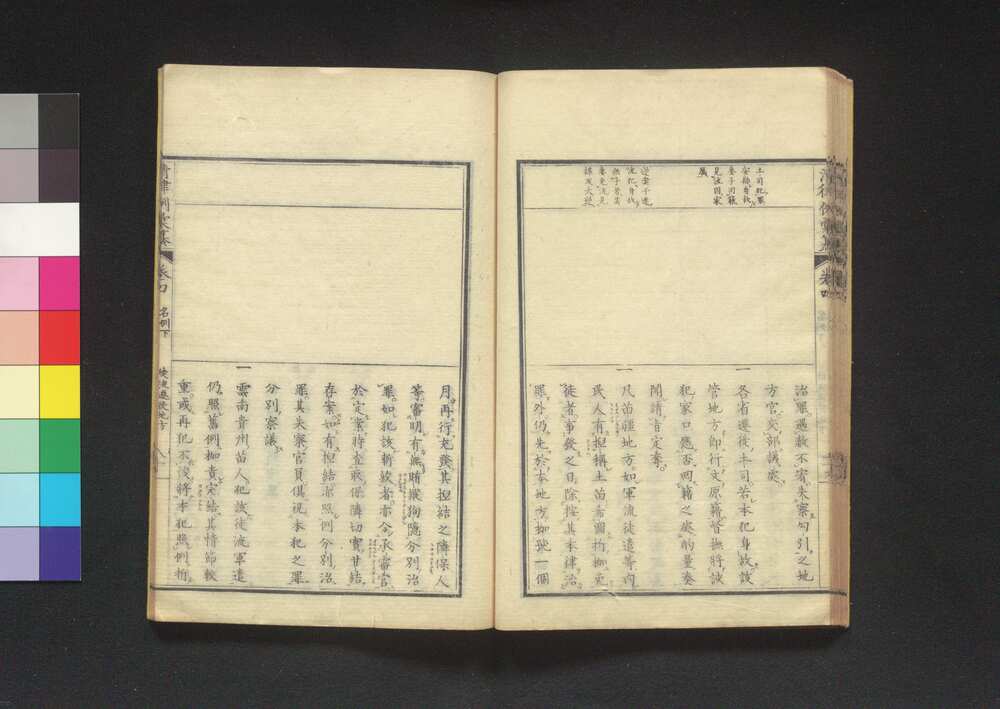 土司犯罪
安插身故
妻子回籍
見注囚家
屬
治罪遇赦不宥失察勾引之地
方官交部議處
一各省遷徙土司若本犯身故該
管地方卽行文原籍督撫將該
犯家口應否回籍之處酌量奏
聞請旨定奪
一凡苗疆地方如軍流徒遣等內
爲人有捏稱土苗希圖折枷免
徒者事發之日除按其本律治
罪外仍先於本地方枷號一個
月再行充發其捏結之隣保人
等審明有無賄縱徇隱分別治
罪如犯該斬絞者亦令承審官
於定案時查取保隣切實甘結
存案如有捏結許照例分別治
罪其失察官員俱視本犯之罪
分別察議
一雲南貴州苗人犯該徒流軍遣
仍照舊例枷責完結其情節較
重或再犯不悛將本犯照例折
卷四
名例下
徒流遷徙地方